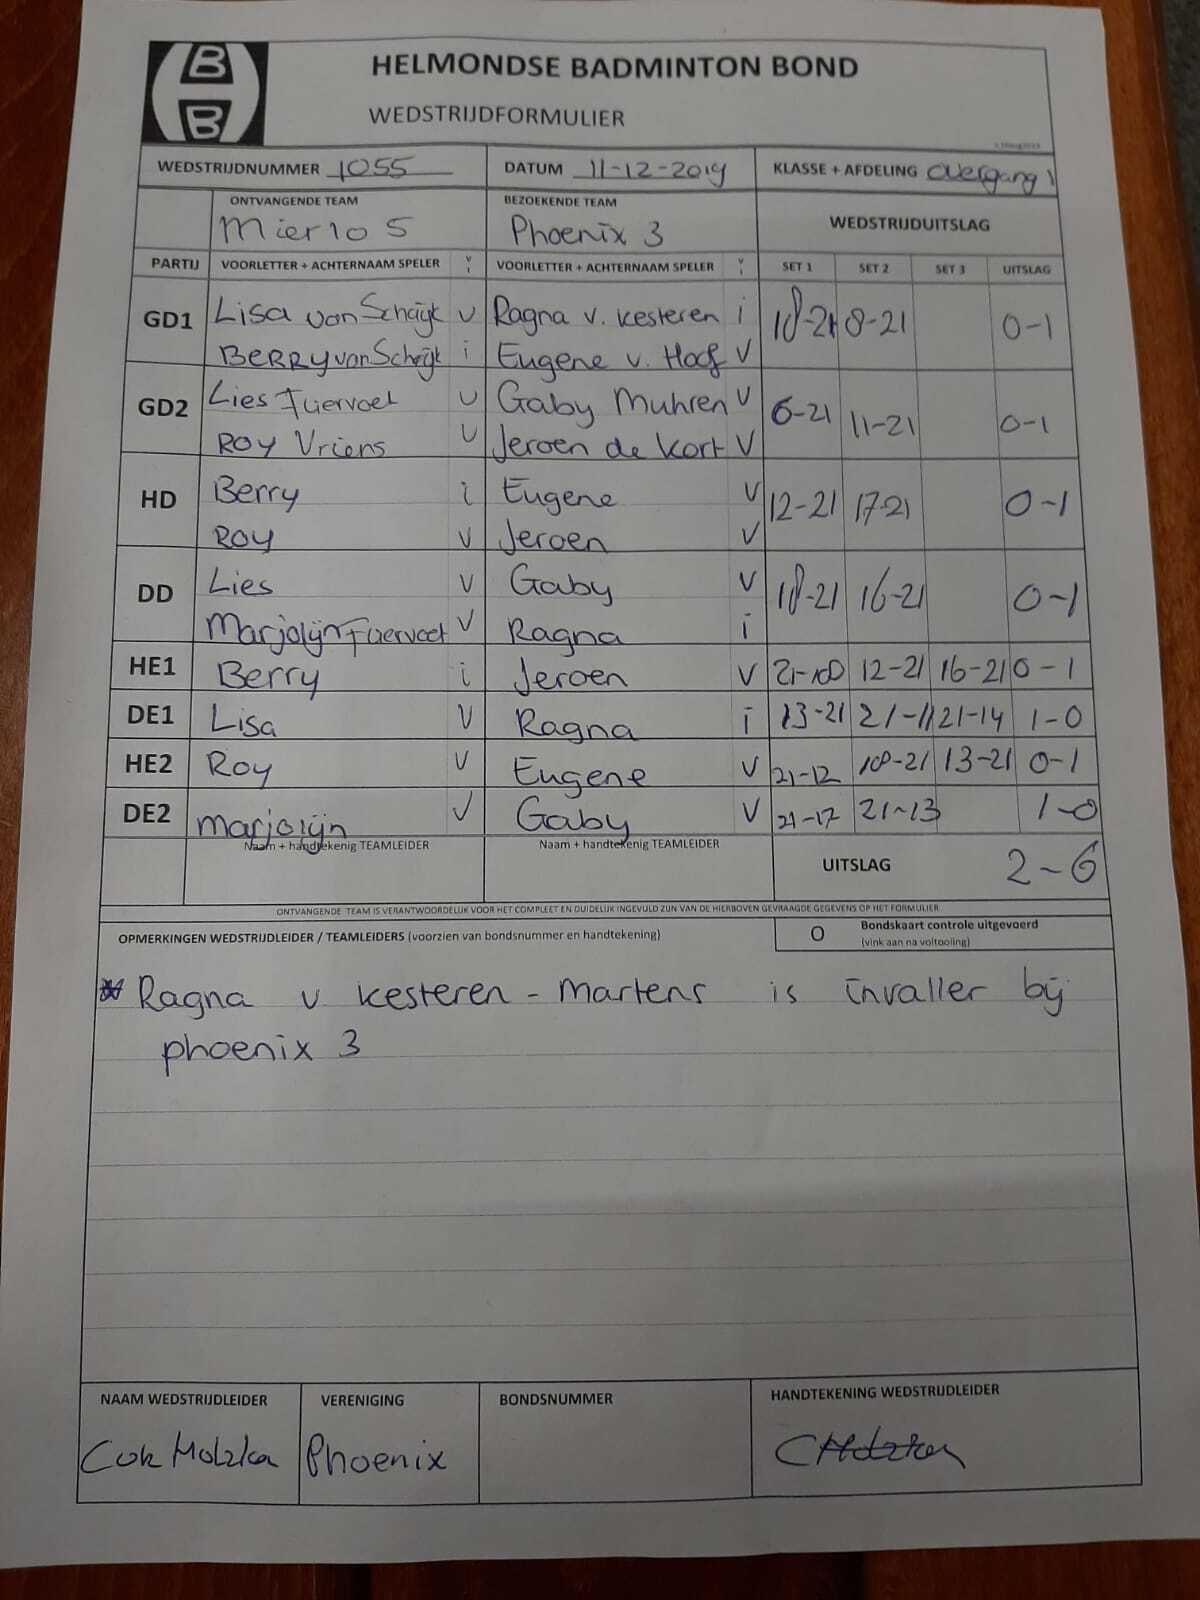 B
B
HELMONDSE BADMINTON BOND
WEDSTRIJDFORMULIER
WEDSTRIJDNUMMER 1055 DATUM 11-12-2019 KLASSE + AFDELING overgang 1
ONTVANGENDE TEAM BEZOEKENDE TEAM WEDSTRIJDUITSLAG
Mierlo 5 Phoenix 3
PARTIJ VOORLETTER + ACHTERNAAM SPELER V I VOORLETTER + ACHTERNAAM SPELER V I SET 1 SET 2 SET 3 UITSLAG
GD1 Lisa van Schaijk v Ragna v. Kesteren i 18-21 8-21 0-1
Berry van Schaijk i Eugene v. Hoof v
GD2 Lies Fiervoet v Gaby Muhren v 6-21 11-21 0-1
Roy Vriens v Jeroen de Kort v
HD Berry i Eugene v 12-21 17-21 0-1
Roy v Jeroen v
DD Lies v Gaby v 18-21 16-21 0-1
Marjolijn Fiervoet v Ragna i
HE1 Berry i Jeroen v 21-18 12-21 16-21 0-1
DE1 Lisa v Ragna i 13-21 21-11 21-14 1-0
HE2 Roy v Eugene v 21-12 18-21 13-21 0-1
DE2 Marjolijn v Gaby v 21-17 21-13 1-0
Naam + handtekenig TEAMLEIDER Naam + handtekenig TEAMLEIDER
UITSLAG 2-6
ONTVANGENDE TEAM IS VERANTWOORDELIJK VOOR HET COMPLEET EN DUIDELIJK INGEVULD ZIJN VAN DE HIERBOVEN GEVRAAGDE GEGEVENS OP HET FORMULIER.
OPMERKINGEN WEDSTRIJDLEIDER / TEAMLEIDERS (voorzien van bondsnummer en handtekening) O Bondskaart controle uitgevoerd
(vink aan na voltooiing)
* Ragna v Kesteren - Martens is invaller bij
phoenix 3
NAAM WEDSTRIJDLEIDER VERENIGING BONDSNUMMER HANDTEKENING WEDSTRIJDLEIDER
Phoenix